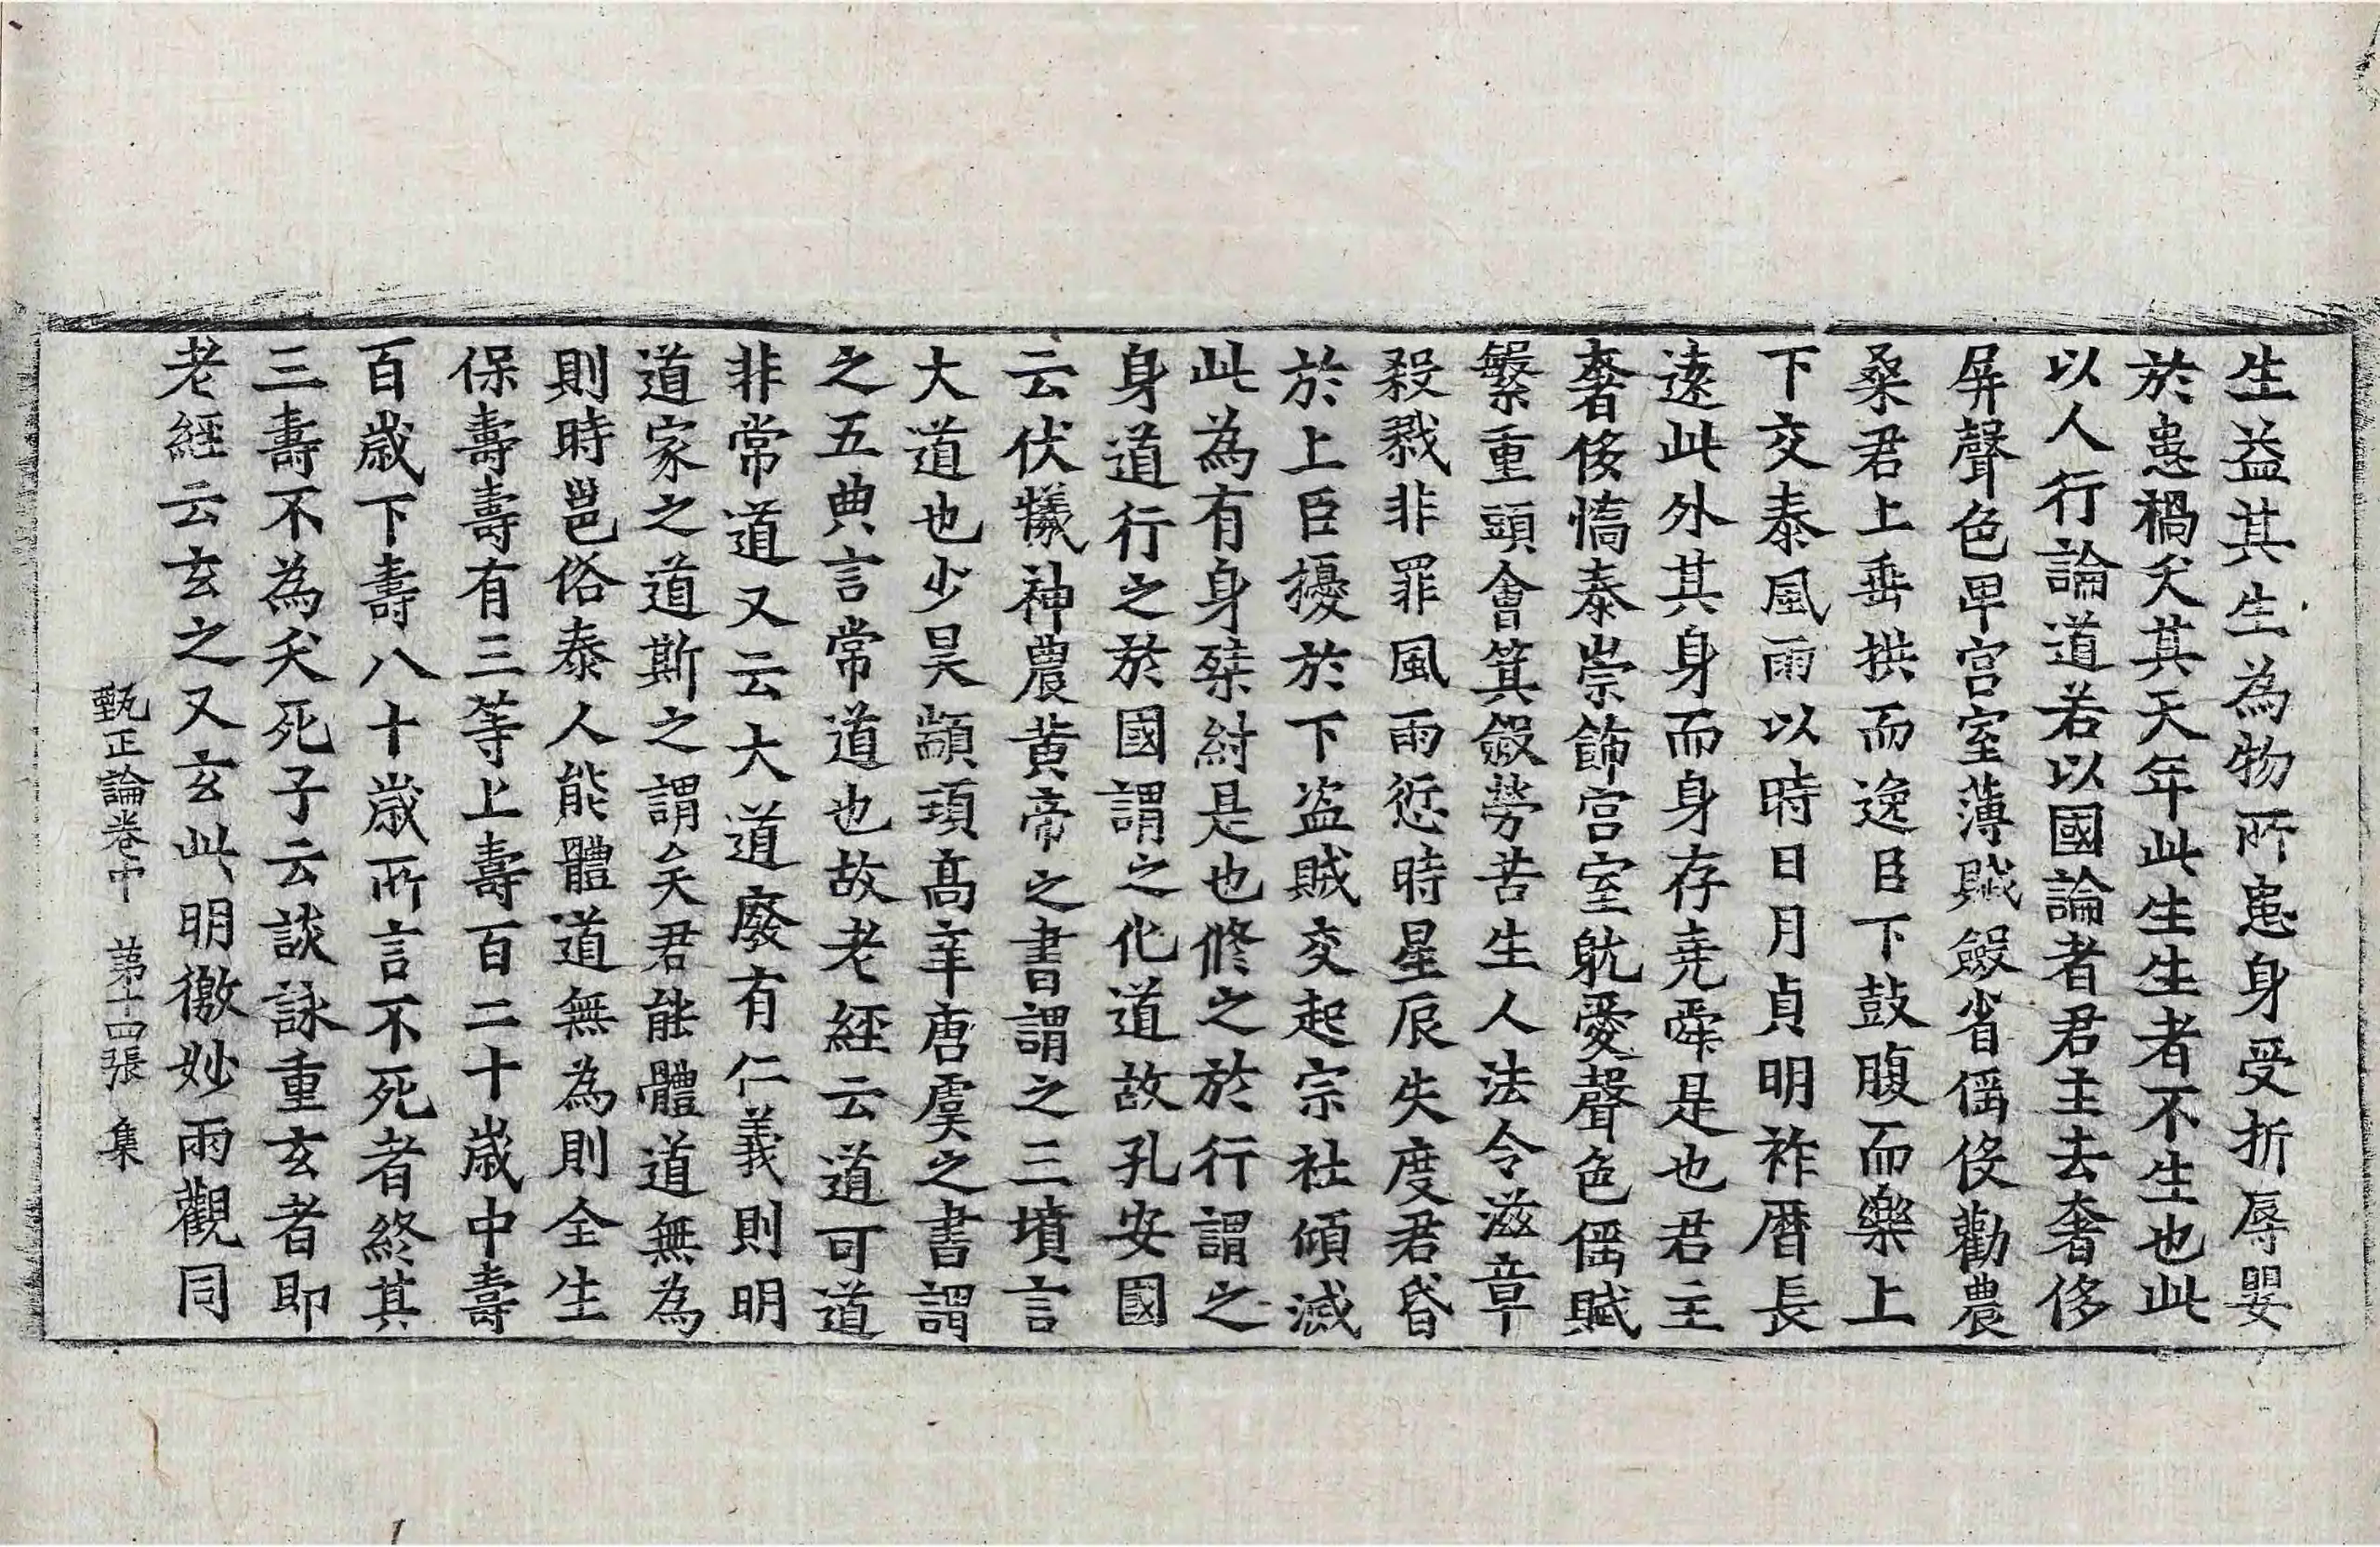 生益其生為物所患身受折辱嬰
於患禍夭其天年此生生者不生也此
以人行論道若以國論者君主去奢侈
屏聲色卑宮室薄賦斂省徭役勸農
桑君上垂拱而逸臣下鼓腹而樂上
下交泰風雨以時日月貞明祚曆長
遠此外其身而身存堯舜是也君主
奢侈憍泰崇飾宮室躭愛聲色徭賦
繁重頭會箕斂勞苦生人法令滋章
殺戮非罪風雨愆時星辰失度君昏
於上臣擾於下盗賊交起宗社傾滅
此為有身桀紂是也修之於行謂之
身道行之於國謂之化道故孔安國
云伏犧神農黃帝之書謂之三墳言
大道也少昊顓頊高辛唐虞之書謂
之五典言常道也故老經云道可道
非常道又云大道廢有仁義則明
道家之道斯之謂矣君能體道無為
則時邕俗泰人能體道無為則全生
保壽壽有三等上壽百二十歲中壽
百歲下壽八十歲所言不死者終其
三壽不為夭死子云談詠重玄者即
老經云玄之又玄此明徼妙兩觀同
甄正論卷中 第十四張 集